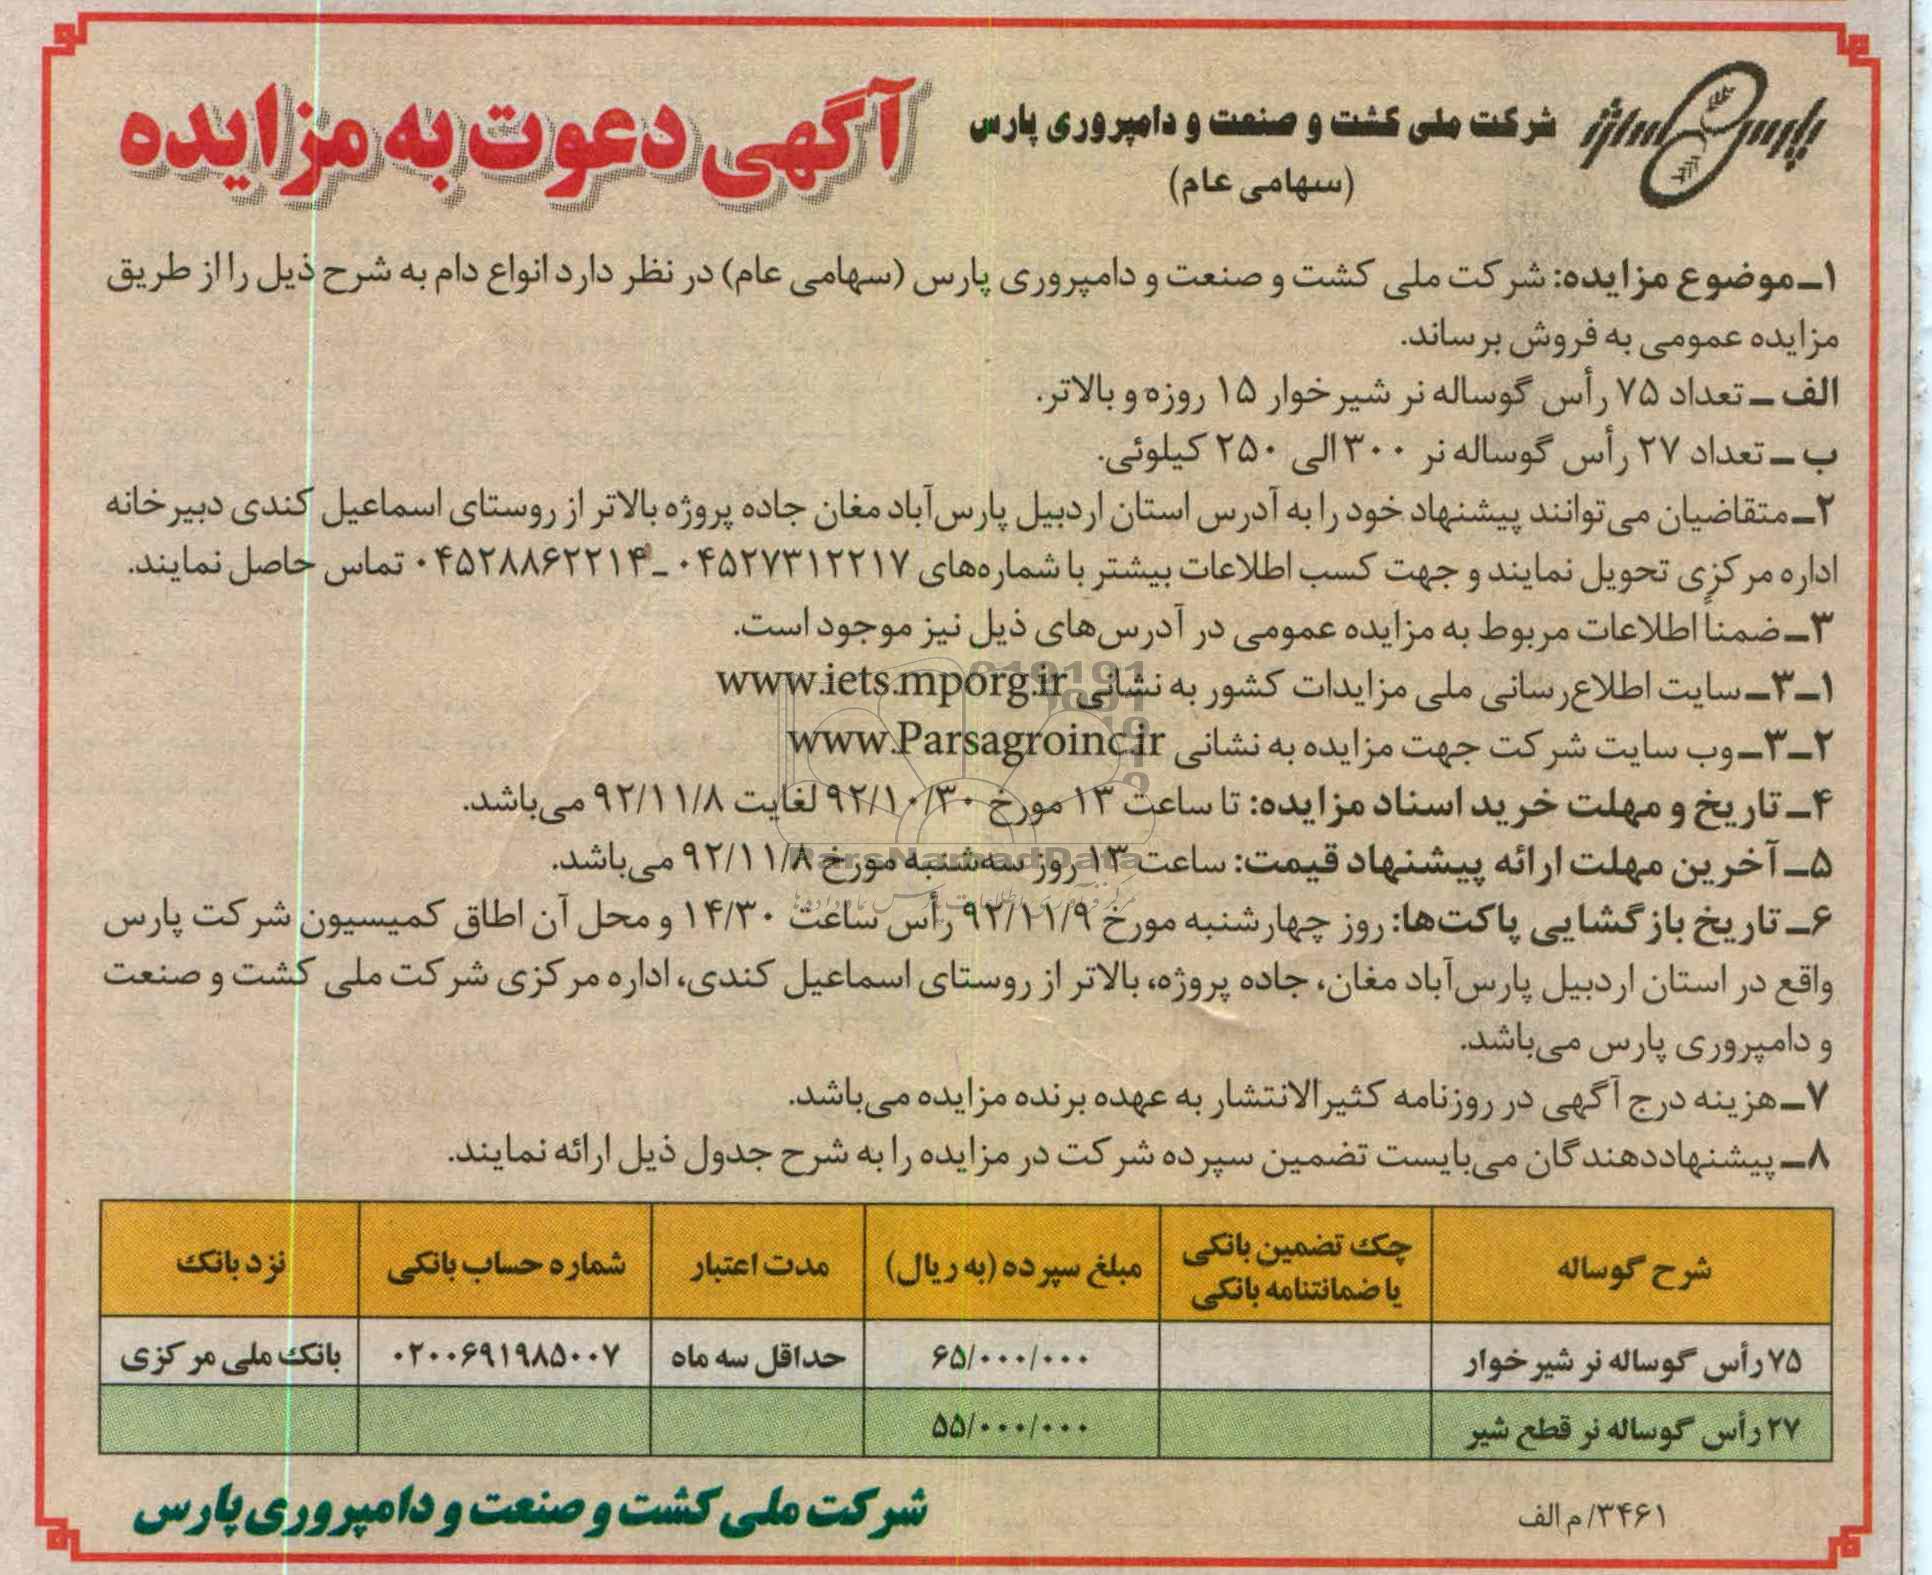 پارس
شرکت ملی کشت و صنعت و دامپروری پارس
(سهامی عام)
آگهی دعوت به مزایده
۱ـ موضوع مزایده: شرکت ملی کشت و صنعت و دامپروری پارس (سهامی عام) در نظر دارد انواع دام به شرح ذیل را از طریق
مزایده عمومی به فروش برساند.
الف ـ تعداد ۷۵ رأس گوساله نر شیرخوار ۱۵ روزه و بالاتر.
ب ـ تعداد ۲۷ رأس گوساله نر ۳۰۰ الی ۲۵۰ کیلوئی.
۲ـ متقاضیان می‌توانند پیشنهاد خود را به آدرس استان اردبیل پارس‌آباد مغان جاده پروژه بالاتر از روستای اسماعیل کندی دبیرخانه
اداره مرکزی تحویل نمایند و جهت کسب اطلاعات بیشتر با شماره‌های ۰۴۵۲۷۳۱۲۲۱۷ ـ ۰۴۵۲۸۸۶۲۲۱۴ تماس حاصل نمایند.
۳ـ ضمناً اطلاعات مربوط به مزایده عمومی در آدرس‌های ذیل نیز موجود است.
۱ـ۳ـ سایت اطلاع‌رسانی ملی مزایدات کشور به نشانی www.iets.mporg.ir
۲ـ۳ـ وب سایت شرکت جهت مزایده به نشانی www.Parsagroinc.ir
۴ـ تاریخ و مهلت خرید اسناد مزایده: تا ساعت ۱۳ مورخ ۹۲/۱۰/۳۰ لغایت ۹۲/۱۱/۸ می‌باشد.
۵ـ آخرین مهلت ارائه پیشنهاد قیمت: ساعت ۱۳ روز سه‌شنبه مورخ ۹۲/۱۱/۸ می‌باشد.
ParsNamadData
۶ـ تاریخ بازگشایی پاکت‌ها: روز چهارشنبه مورخ ۹۲/۱۱/۹ رأس ساعت ۱۴/۳۰ و محل آن اطاق کمیسیون شرکت پارس
واقع در استان اردبیل پارس‌آباد مغان، جاده پروژه، بالاتر از روستای اسماعیل کندی، اداره مرکزی شرکت ملی کشت و صنعت
و دامپروری پارس می‌باشد.
۷ـ هزینه درج آگهی در روزنامه کثیرالانتشار به عهده برنده مزایده می‌باشد.
۸ـ پیشنهاددهندگان می‌بایست تضمین سپرده شرکت در مزایده را به شرح جدول ذیل ارائه نمایند.
شرح گوساله چک تضمین بانکی یا ضمانتنامه بانکی مبلغ سپرده (به ریال) مدت اعتبار شماره حساب بانکی نزد بانک
۷۵ رأس گوساله نر شیرخوار ۶۵/۰۰۰/۰۰۰ حداقل سه ماه ۰۲۰۰۶۹۱۹۸۵۰۰۷ بانک ملی مرکزی
۲۷ رأس گوساله نر قطع شیر ۵۵/۰۰۰/۰۰۰
۳۴۶۱/ م الف
شرکت ملی کشت و صنعت و دامپروری پارس